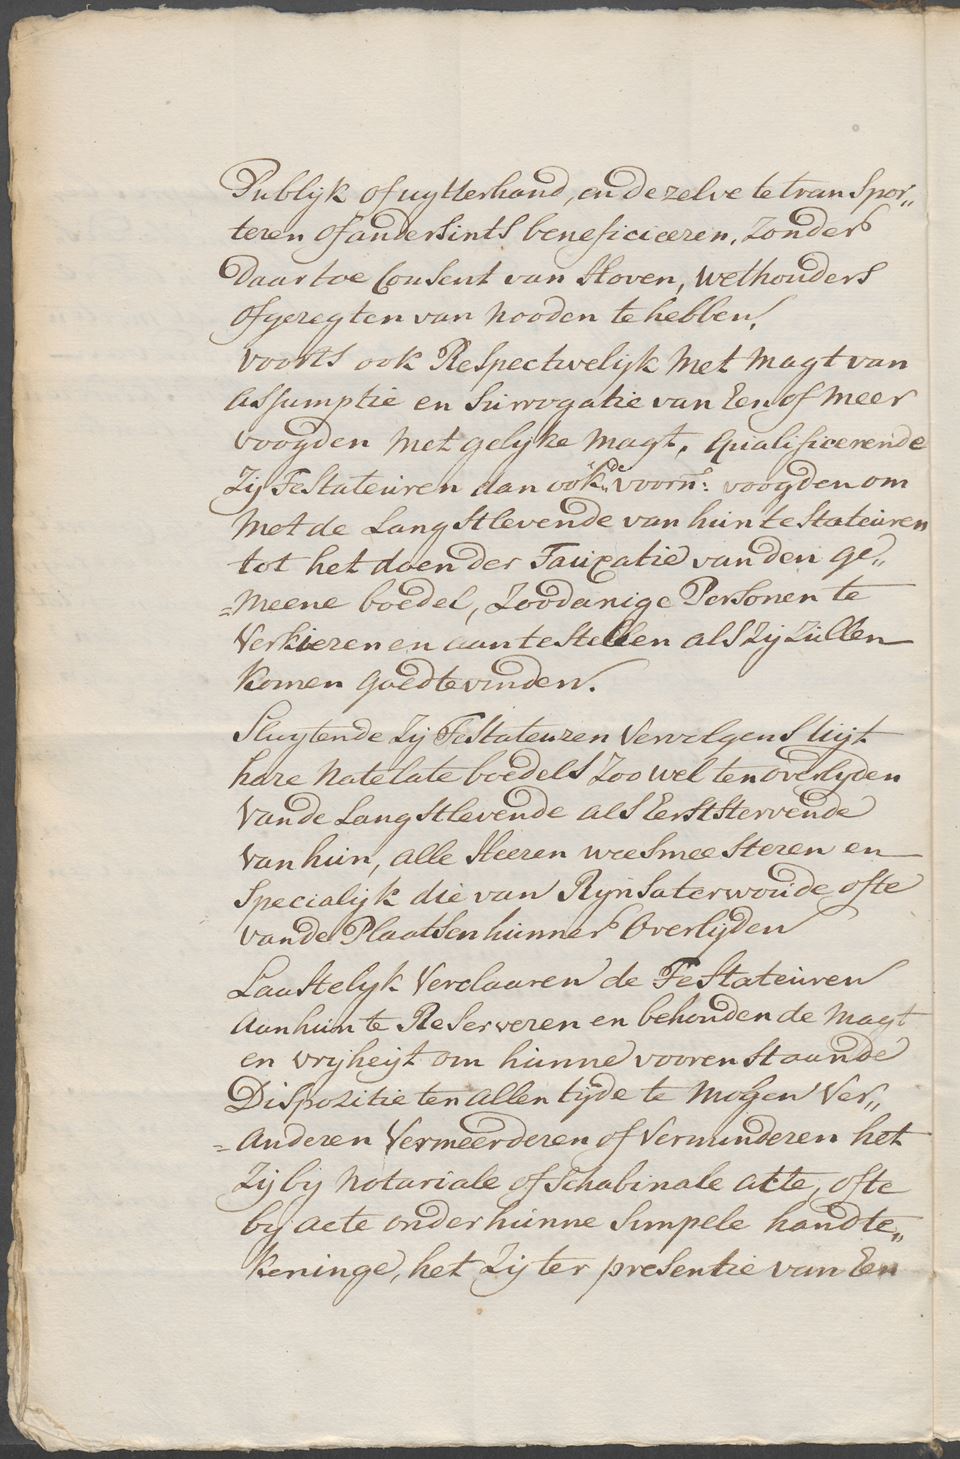 Publijk of uytterhand, en dezelve te transpor„
teren of andersints beneficieeren, Zonder
Daar toe Consent van Hoven, wethouders
of geregten van nooden te hebben,
voorts ook Respectivelijk Met Magt van
Assumptie en Surrogatie van Een of Meer
voogden Met gelijke Magt, Qualificeerende
Zij Testateuren dan ook de voorn: voogden om
Met de Langstlevende van hun testateuren
tot het doen der Tauxatie van den ge„
=Meene boedel, Zoodanige Personen te
Verkiezen en aan te stellen als Zij Zullen
Komen goed te vinden.
Sluytende Zij Testateuren Vervolgens Uijt
hare Natelate boedels Zoo wel ten overlyden
Van de Langstlevende als Eerststervende
Van hun, alle Heeren weesmeesteren en
Specialijk die van Rynsaterwoude ofte
van de Plaatsen hunner Overlyden
Laastelyk Verclaaren de Testateuren
Aan hun te Reserveren en behouden de Magt
en vrijheijt om hunne voorenstaande
Dispozitie ten allen tijde te Mogen Ver„
=Anderen Vermeerderen of Verminderen het
Zij bij Notariale of Schabinale acte, ofte
bij acte onder hunne Simpele handte„
Keninge, het Zij ter presentie van Een